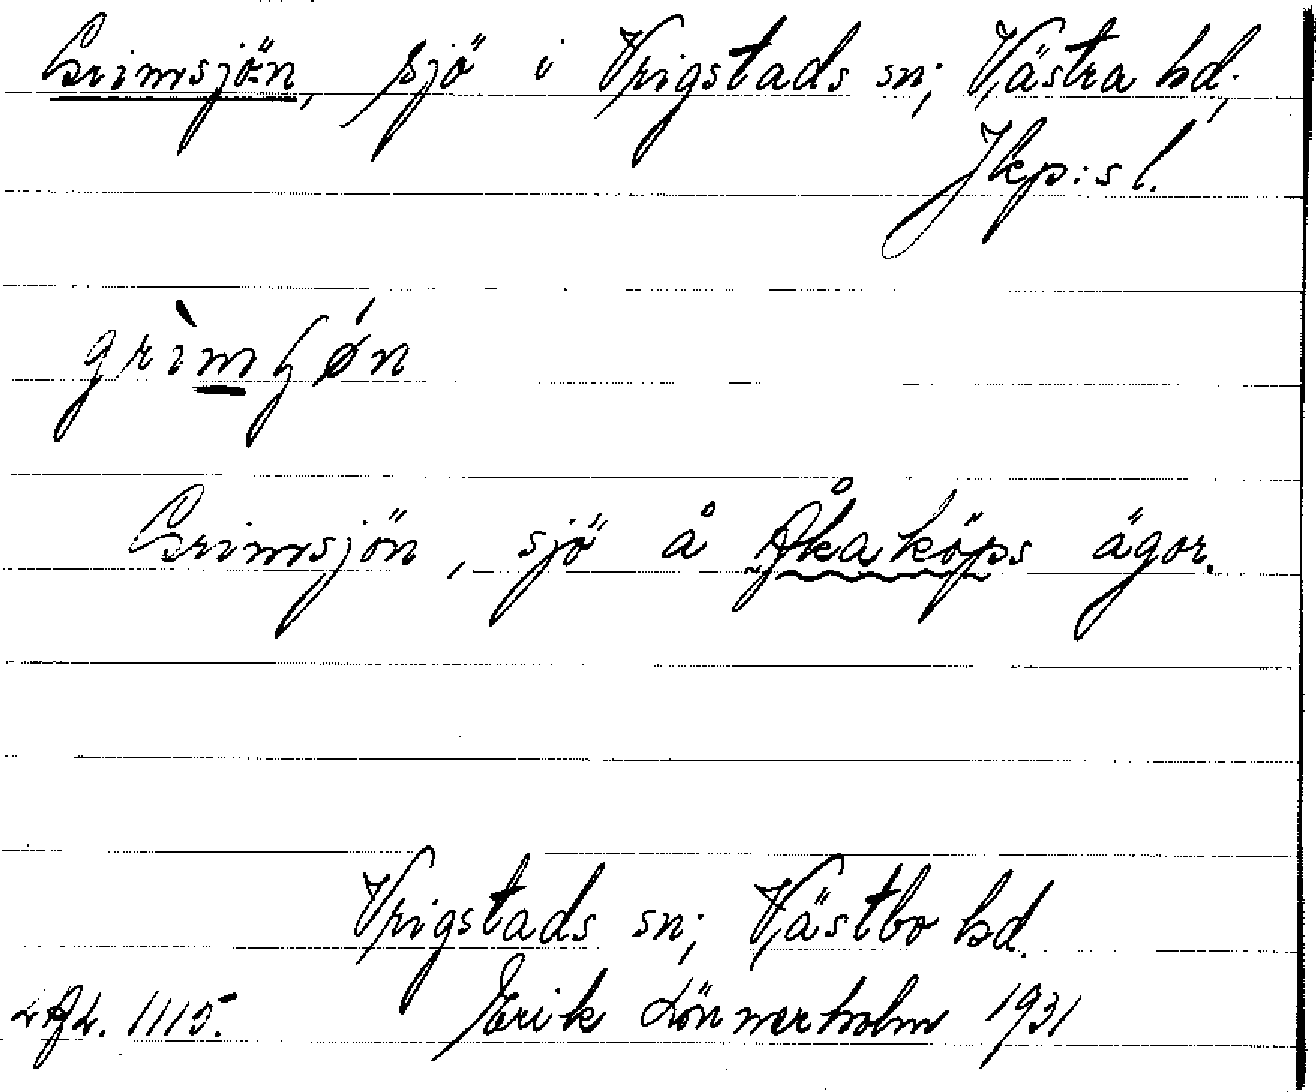 Grimsjön, sjö i Vrigstads sn; Västra hd;
Jkp:s l.
grìmɧǿn
Grimsjön, sjö å Åkaköps ägor.
Vrigstads sn; Västbo hd.
LAL. 1115. Erik Lönnerholm 1931